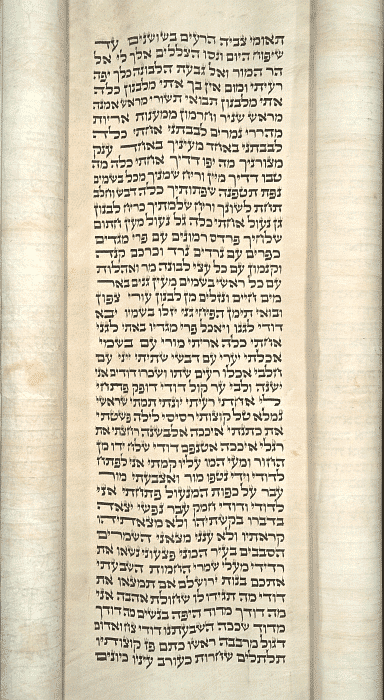 תאומי צביה הרעים בשושנים עד
שיפוח היום ונסו הצללים אלך לי אל
הר המור ואל גבעת הלבונה כלך יפה
רעיתי ומום אין בך אתי מלבנון כלה
אתי מלבנון תבואי תשורי מראש אמנה
מראש שניר וחרמון ממענות אריות
מהררי נמרים לבבתני אחתי כלה
לבבתני באחד מעיניך באחד ענק
מצורניך מה יפו דדיך אחתי כלה מה
טבו דדיך מיין וריח שמניך מכל בשמים
נפת תטפנה שפתותיך כלה דבש וחלב
תחת לשונך וריח שלמתיך כריח לבנון
גן נעול אחתי כלה גל נעול מעין חתום
שלחיך פרדס רמונים עם פרי מגדים
כפרים עם נרדים נרד וכרכם קנה
וקנמון עם כל עצי לבונה מר ואהלות
עם כל ראשי בשמים מעין גנים באר
מים חיים ונזלים מן לבנון עורי צפון
ובואי תימן הפיחי גני יזלו בשמיו יבא
דודי לגנו ויאכל פרי מגדיו באתי לגני
אחתי כלה אריתי מורי עם בשמי
אכלתי יערי עם דבשי שתיתי ייני עם
חלבי אכלו רעים שתו ושכרו דודים אני
ישנה ולבי ער קול דודי דופק פתחי
לי אחתי רעיתי יונתי תמתי שראשי
נמלא טל קוצותי רסיסי לילה פשטתי
את כתנתי איככה אלבשנה רחצתי את
רגלי איככה אטנפם דודי שלח ידו מן
החור ומעי המו עליו קמתי אני לפתח
לדודי וידי נטפו מור ואצבעתי מור
עבר על כפות המנעול פתחתי אני
לדודי ודודי חמק עבר נפשי יצאה
בדברו בקשתיהו ולא מצאתיהו
קראתיו ולא ענני מצאני השמרים
הסבבים בעיר הכוני פצעוני נשאו את
רדידי מעלי שמרי החמות השבעתי
אתכם בנות ירושלם אם תמצאו את
דודי מה תגידו לו שחולת אהבה אני
מה דודך מדוד היפה בנשים מה דודך
מדוד שככה השבעתנו דודי צח ואדום
דגול מרבבה ראשו כתם פז קוצותיו
תלתלים שחרות כעורב עיניו כיונים